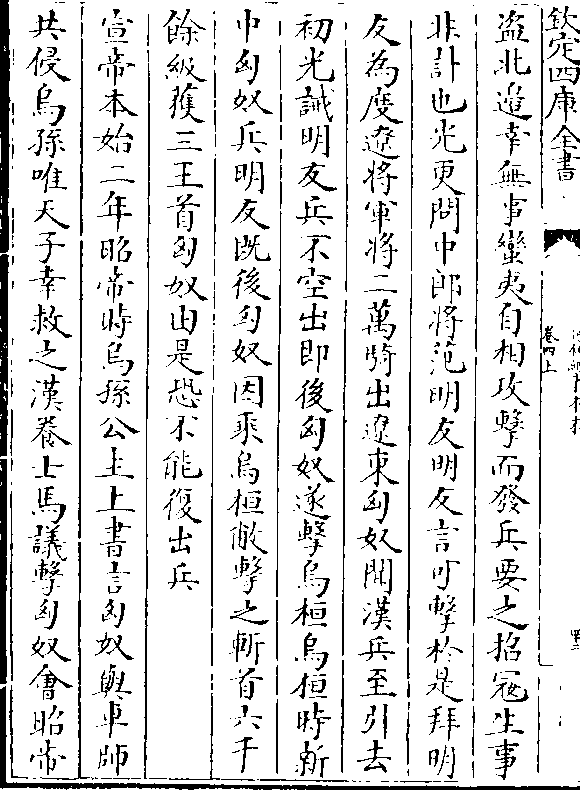 欽定四庫全書
卷四上
盗北邉幸無事蠻夷自相攻擊而發兵要之招冦生事
非計也光更問中郎將范明友明友言可擊於是拜明
友為度遼將軍將二萬騎出遼東匈奴聞漢兵至引去
初光誡明友兵不空出即後匈奴遂擊烏桓烏桓時新
中匈奴兵明友既後匈奴因乘烏桓敝擊之斬首六千
餘級獲三王首匈奴由是恐不能復出兵
宣帝本始二年昭帝時烏孫公主上書言匈奴與車師
共侵烏孫唯天子幸救之漢養士馬議擊匈奴會昭帝